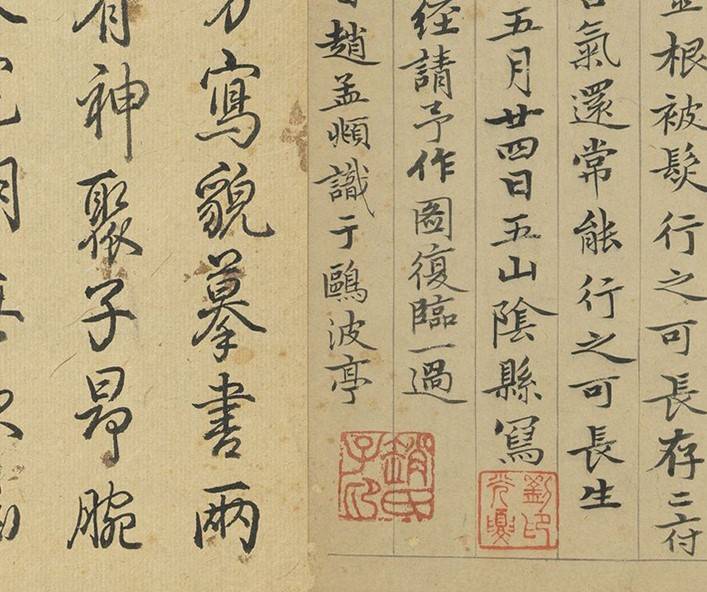 根被髮行之可長存二府
氣還常能行之可長生
五月廿四日五山陰縣寫
經請予作圖復臨一過
趙孟頫識于鷗波亭
寫貌摹書兩
有神聚子昂腕